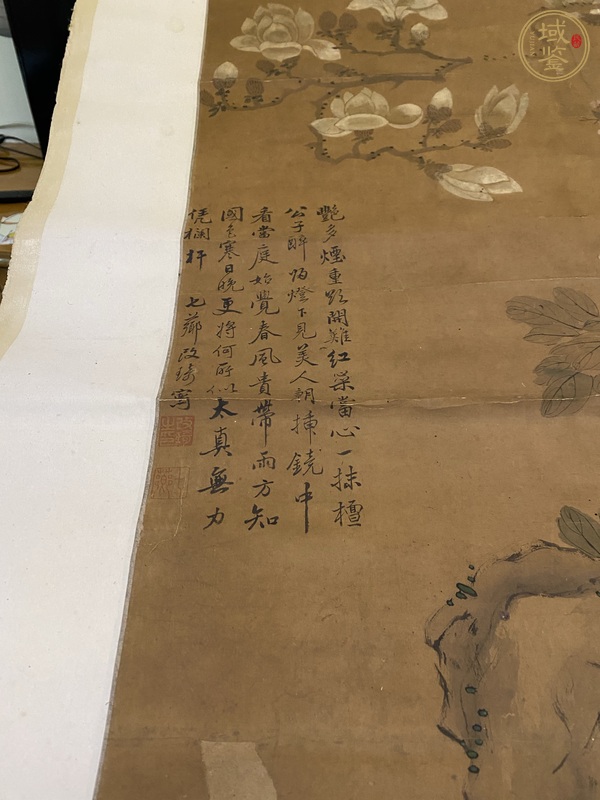 艷多煙重欲開難紅蕊當心一抹檀
公子醉歸燈下見美人朝插鏡中
看當庭始覺春風貴帶雨方知
國色寒日晚更將何所似太真無力
凭欄杆 七薌改琦寫
域鑒